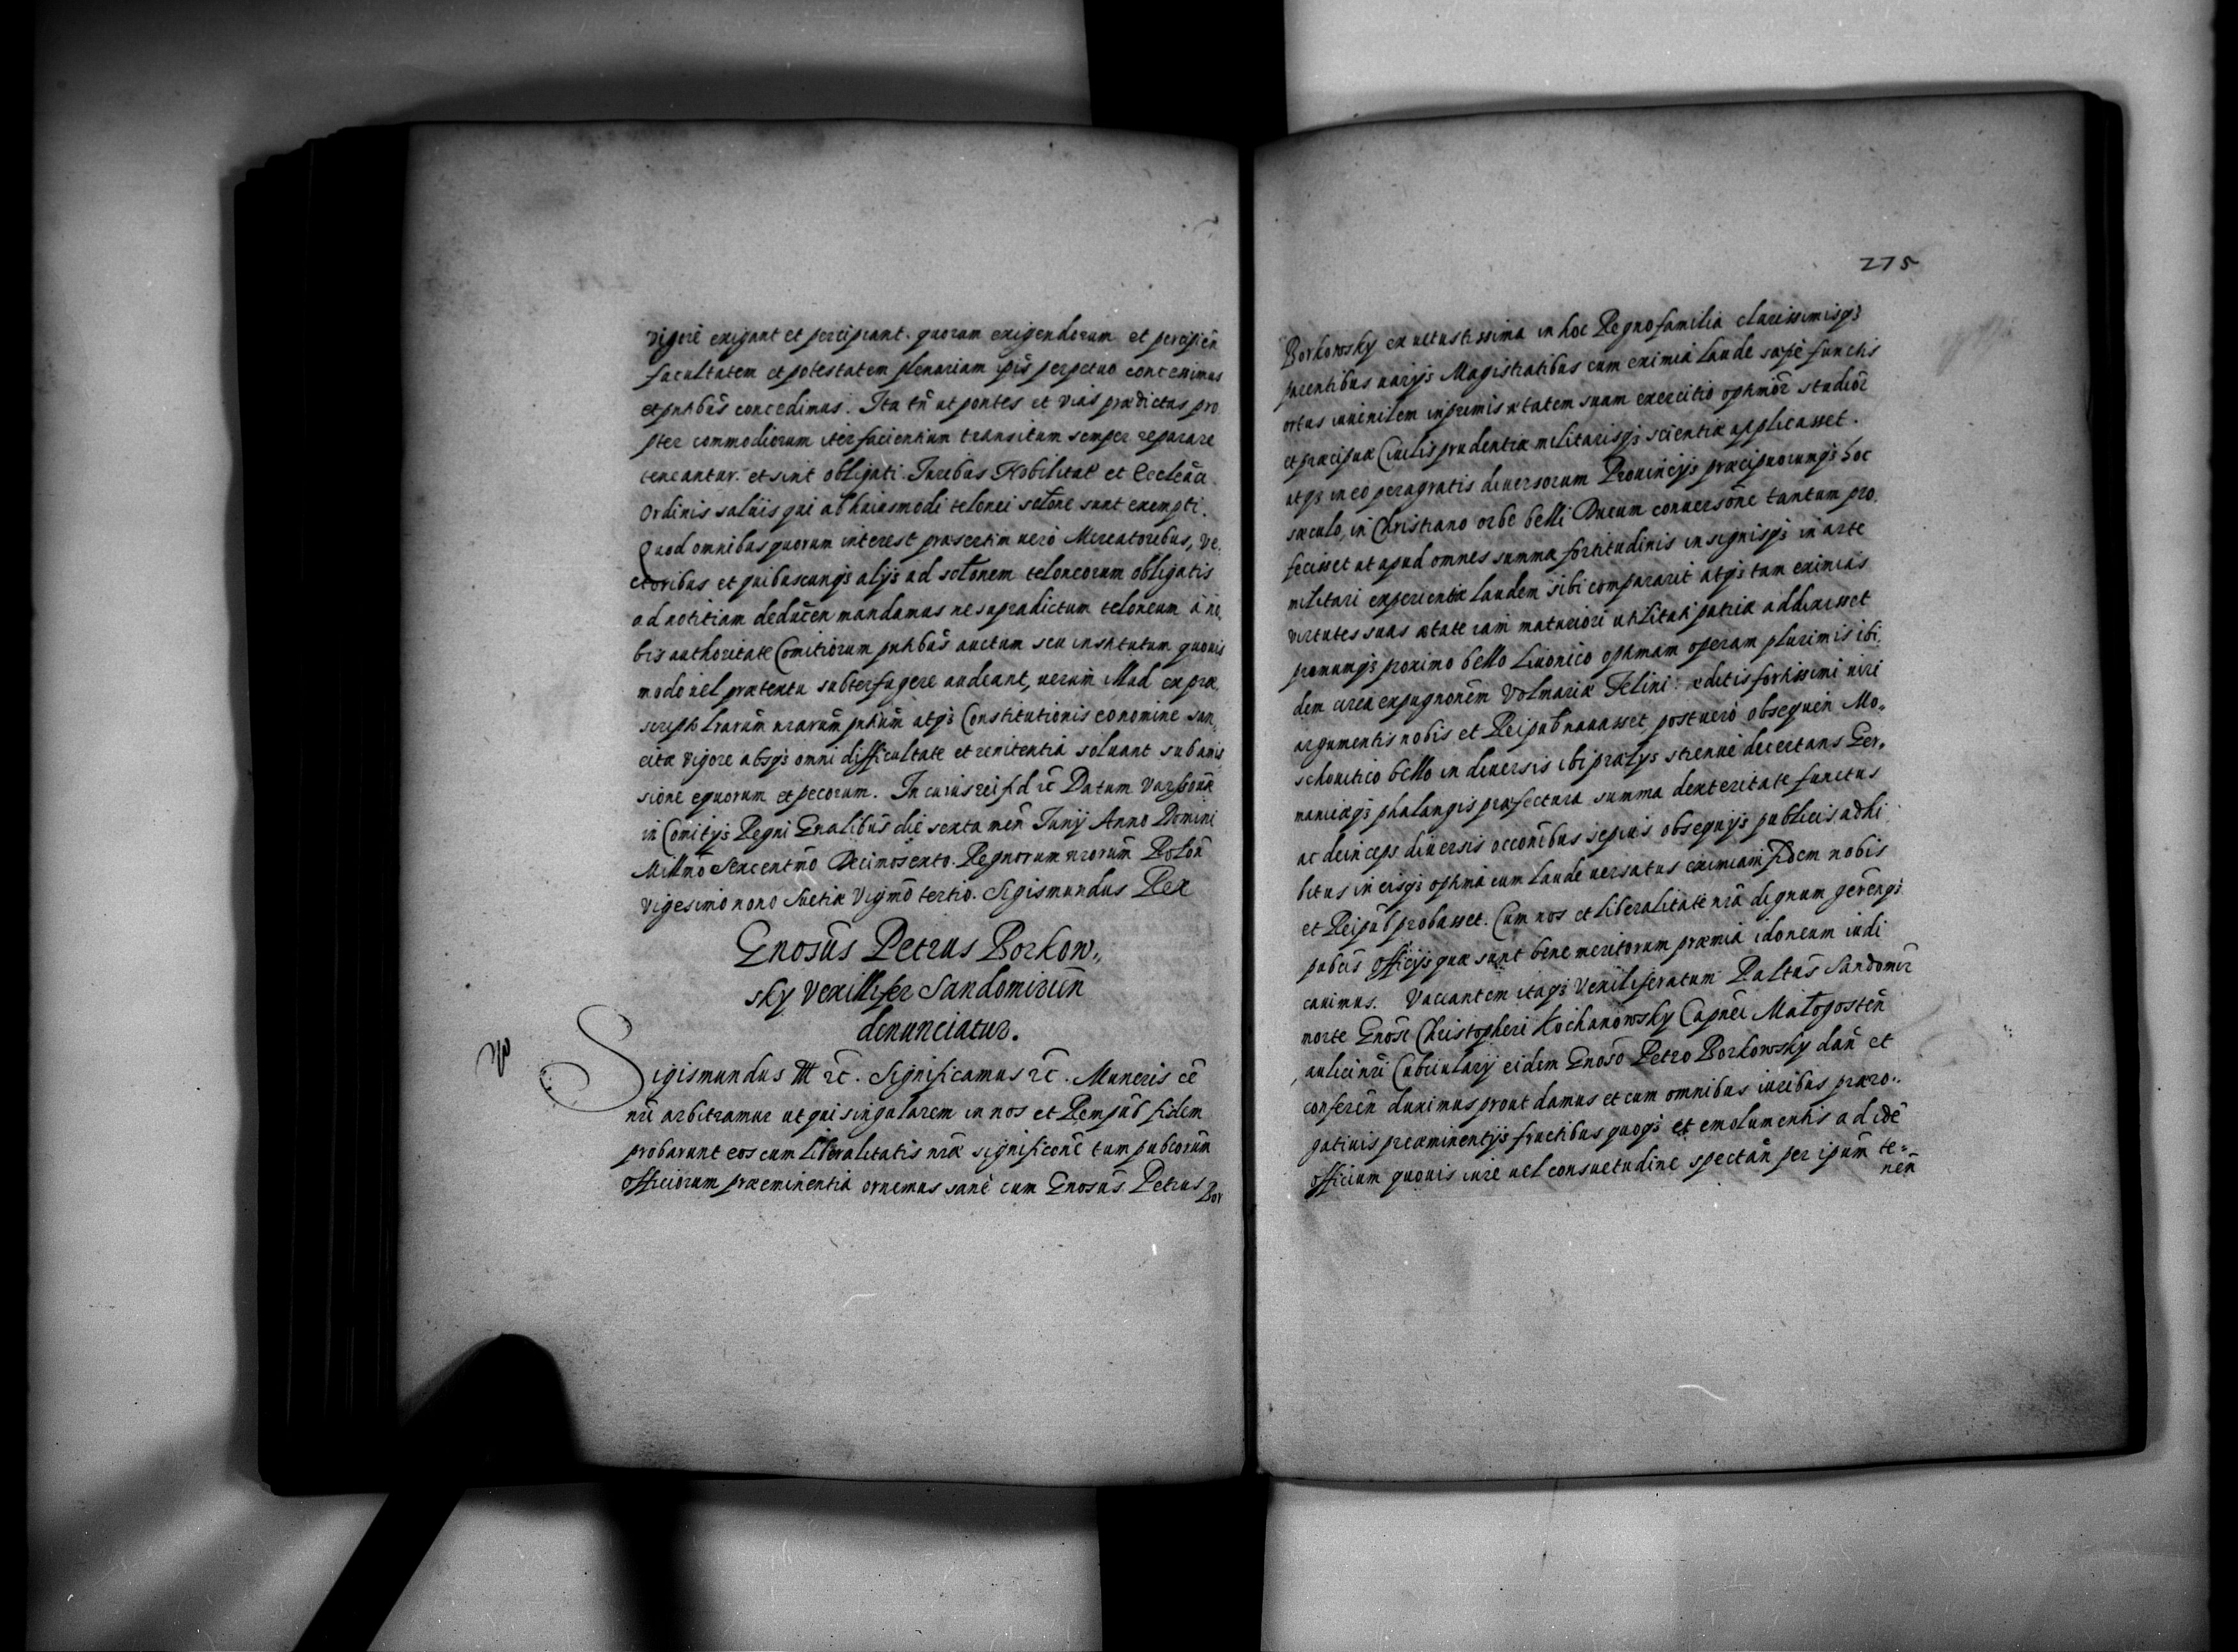 vigore exigant et percipiant. quorum exigendorum et percipien̄
facultatem et potestatem plenariam ip̄is perpetuo concessimus
et pn̄tibūs concedimus. Ita tn̄ ut pontes et vias prædictas pro
pter commodiorum iter facientium transitum semper reparare
teneantur. et sint obligati Juribus Nobilitat̄ et Eccleāci
Ordinis saluis qui ab huiusmodi telonei sol̄one sunt exempti.
Quod omnibus quorum interest præsertim uero Mercatoribus, Ve,
ctoribus et quibuscunqȝ alijs ad solōnem teloneorum obligatis
ad notitiam deducen̄ mandamus ne supradictum teloneum à no,
bis authoritate Comitiorum pn̄tibūs auctum seu institutum quouis
modo uel prætextu subterfugere audeant, uerum illud ex præ,
scripto lrarūm nrarūm pn̄tiūm atqȝ Constitutionis eo nomine san,
citæ vigore absqȝ omni difficultate et renitentia soluant sub amis,
sione equorum et pecorum. In cuius rei fid ꝛc Datum Varsouiæ
in Comitijs Regni Gnalibūs die sexta men̄ Junij Anno Domini
Millm̄o Sexcentm̄o Decimosexto. Regnorum nrorūm Polon̄
Vigesimo nono Suetiæ Vigm̄o tertio. Sigismundus Rex
Gnosūs Petrus Borkow,,
sky Vexillifer Sandomirien̄
denunciatur.
Sigismundus III ꝛc. Significamus ꝛc. Muneris eē
nrī arbitramur ut qui singularem in nos et Rempūb fidem
probarunt eos cum liberalitatis nrǣ significōne tum pubcorūm
officiorum præeminentia ornemus sanè cum Gnosūs Petrus
Bor
275
Borkowsky ex uetustissima in hoc Regno familia clarissimisqȝ
parentibus uarijs Magistratibus cum eximia laude sæpè functis
ortus iuuenilem inprimis ætatem suam exercitio optimōr studiōr
et præcipuæ Ciuilis prudentiæ militarisqȝ scientiæ applicasset.
atqȝ in eo peragratis diuersorum Prouincijs præcipuorumqȝ hoc
sæculo, in Christiano orbe belli Ducum conuersōne tantum pro,
fecisset ut apud omnes summæ fortitudinis insignisqȝ in arte
militari experientiæ laudem sibi compararit atqȝ tam eximias
virtutes suas ætate iam maturiori utilitati patriæ addixisset
primumqȝ proximo bello Liuonico optimam operam plurimis ibi,
dem circa expugnōnem Volmariæ Felini æditis fortissimi uiri
argumentis nobis et Reipub̄ nauasset, post uerò obsequen̄ Mo,,
schouitico bello in diuersis ibi prælijs strenuè decertans Ger,
manicæqȝ phalangis præfectura summa dexteritate functus
ac deinceps diuersis occōnibus sepius obsequijs publicis adhi
bitus in eisqȝ optima cum laude uersatus eximiam fidem nobis
et Reipub̄ probasset. Cum nos et liberalitate nrā dignum gerēnqȝ
pubcīs officijs quæ sunt bene meritorum præmia idoneum iudi
cauimus. Vacantem itaqȝ Vexiliferatum Paltūs Sandomir̄
morte Gnosī Christopheri Kochanowsky Capnēi Małogosten̄
aulici nrī Cubicularij eidem Gnosō Petro Borkowsky dan̄ et
conferen̄ duximus prout damus et cum omnibus iuribus præro,,
gatiuis præeminentijs fructibus quoqȝ et emolumentis ad idē
officium quouis iure uel consuetudine spectan̄ per ipūm te=
nen̄